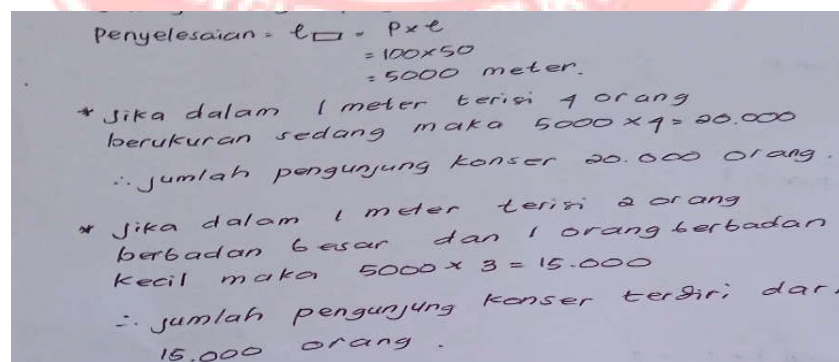 Penyelesaian = L▭ = P×l
= 100×50
= 5000 meter.
* Jika dalam 1 meter terisi 4 orang
berukuran sedang maka 5000 × 4 = 20.000
∴ jumlah pengunjung konser 20.000 orang.
* Jika dalam 1 meter terisi 2 orang
berbadan besar dan 1 orang berbadan
kecil maka 5000 × 3 = 15.000
∴ jumlah pengunjung konser terdiri dari
15.000 orang.